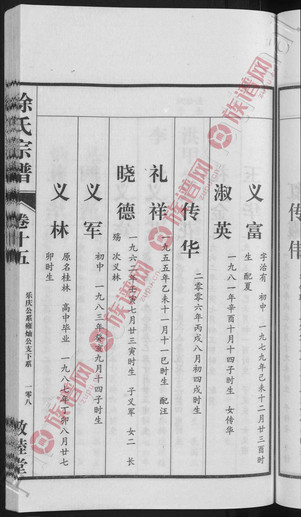 义富
字治有 初中 一九七九年己未十二月廿三酉时
生 配夏
淑英
一九八一年辛酉十月十四子时生 女传华
传华
二零零六年丙戌八月初四戌时生
礼祥
一九五五年乙未十一月十一巳时生 配汪
晓德
一九六二年壬寅七月廿三寅时生 子义军 女二 长
殇 次义林
义军
初中 一九八三年癸亥九月十四子时生
义林
原名桂林 高中毕业 一九八七年丁卯八月廿七
卯时生
徐氏宗谱
卷十五
乐庆公系雍灿公支下系
一零八
敦睦堂
族谱网